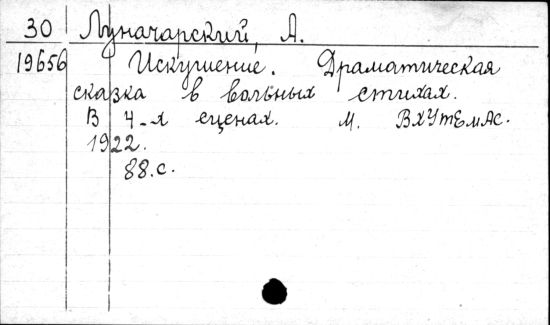 30 Луначарский, А.
19656 Искушение. Драматическая
сказка в вольных стихах.
В 4-х сценах. М. ВХУтЕмАс.
1922.
88.с.